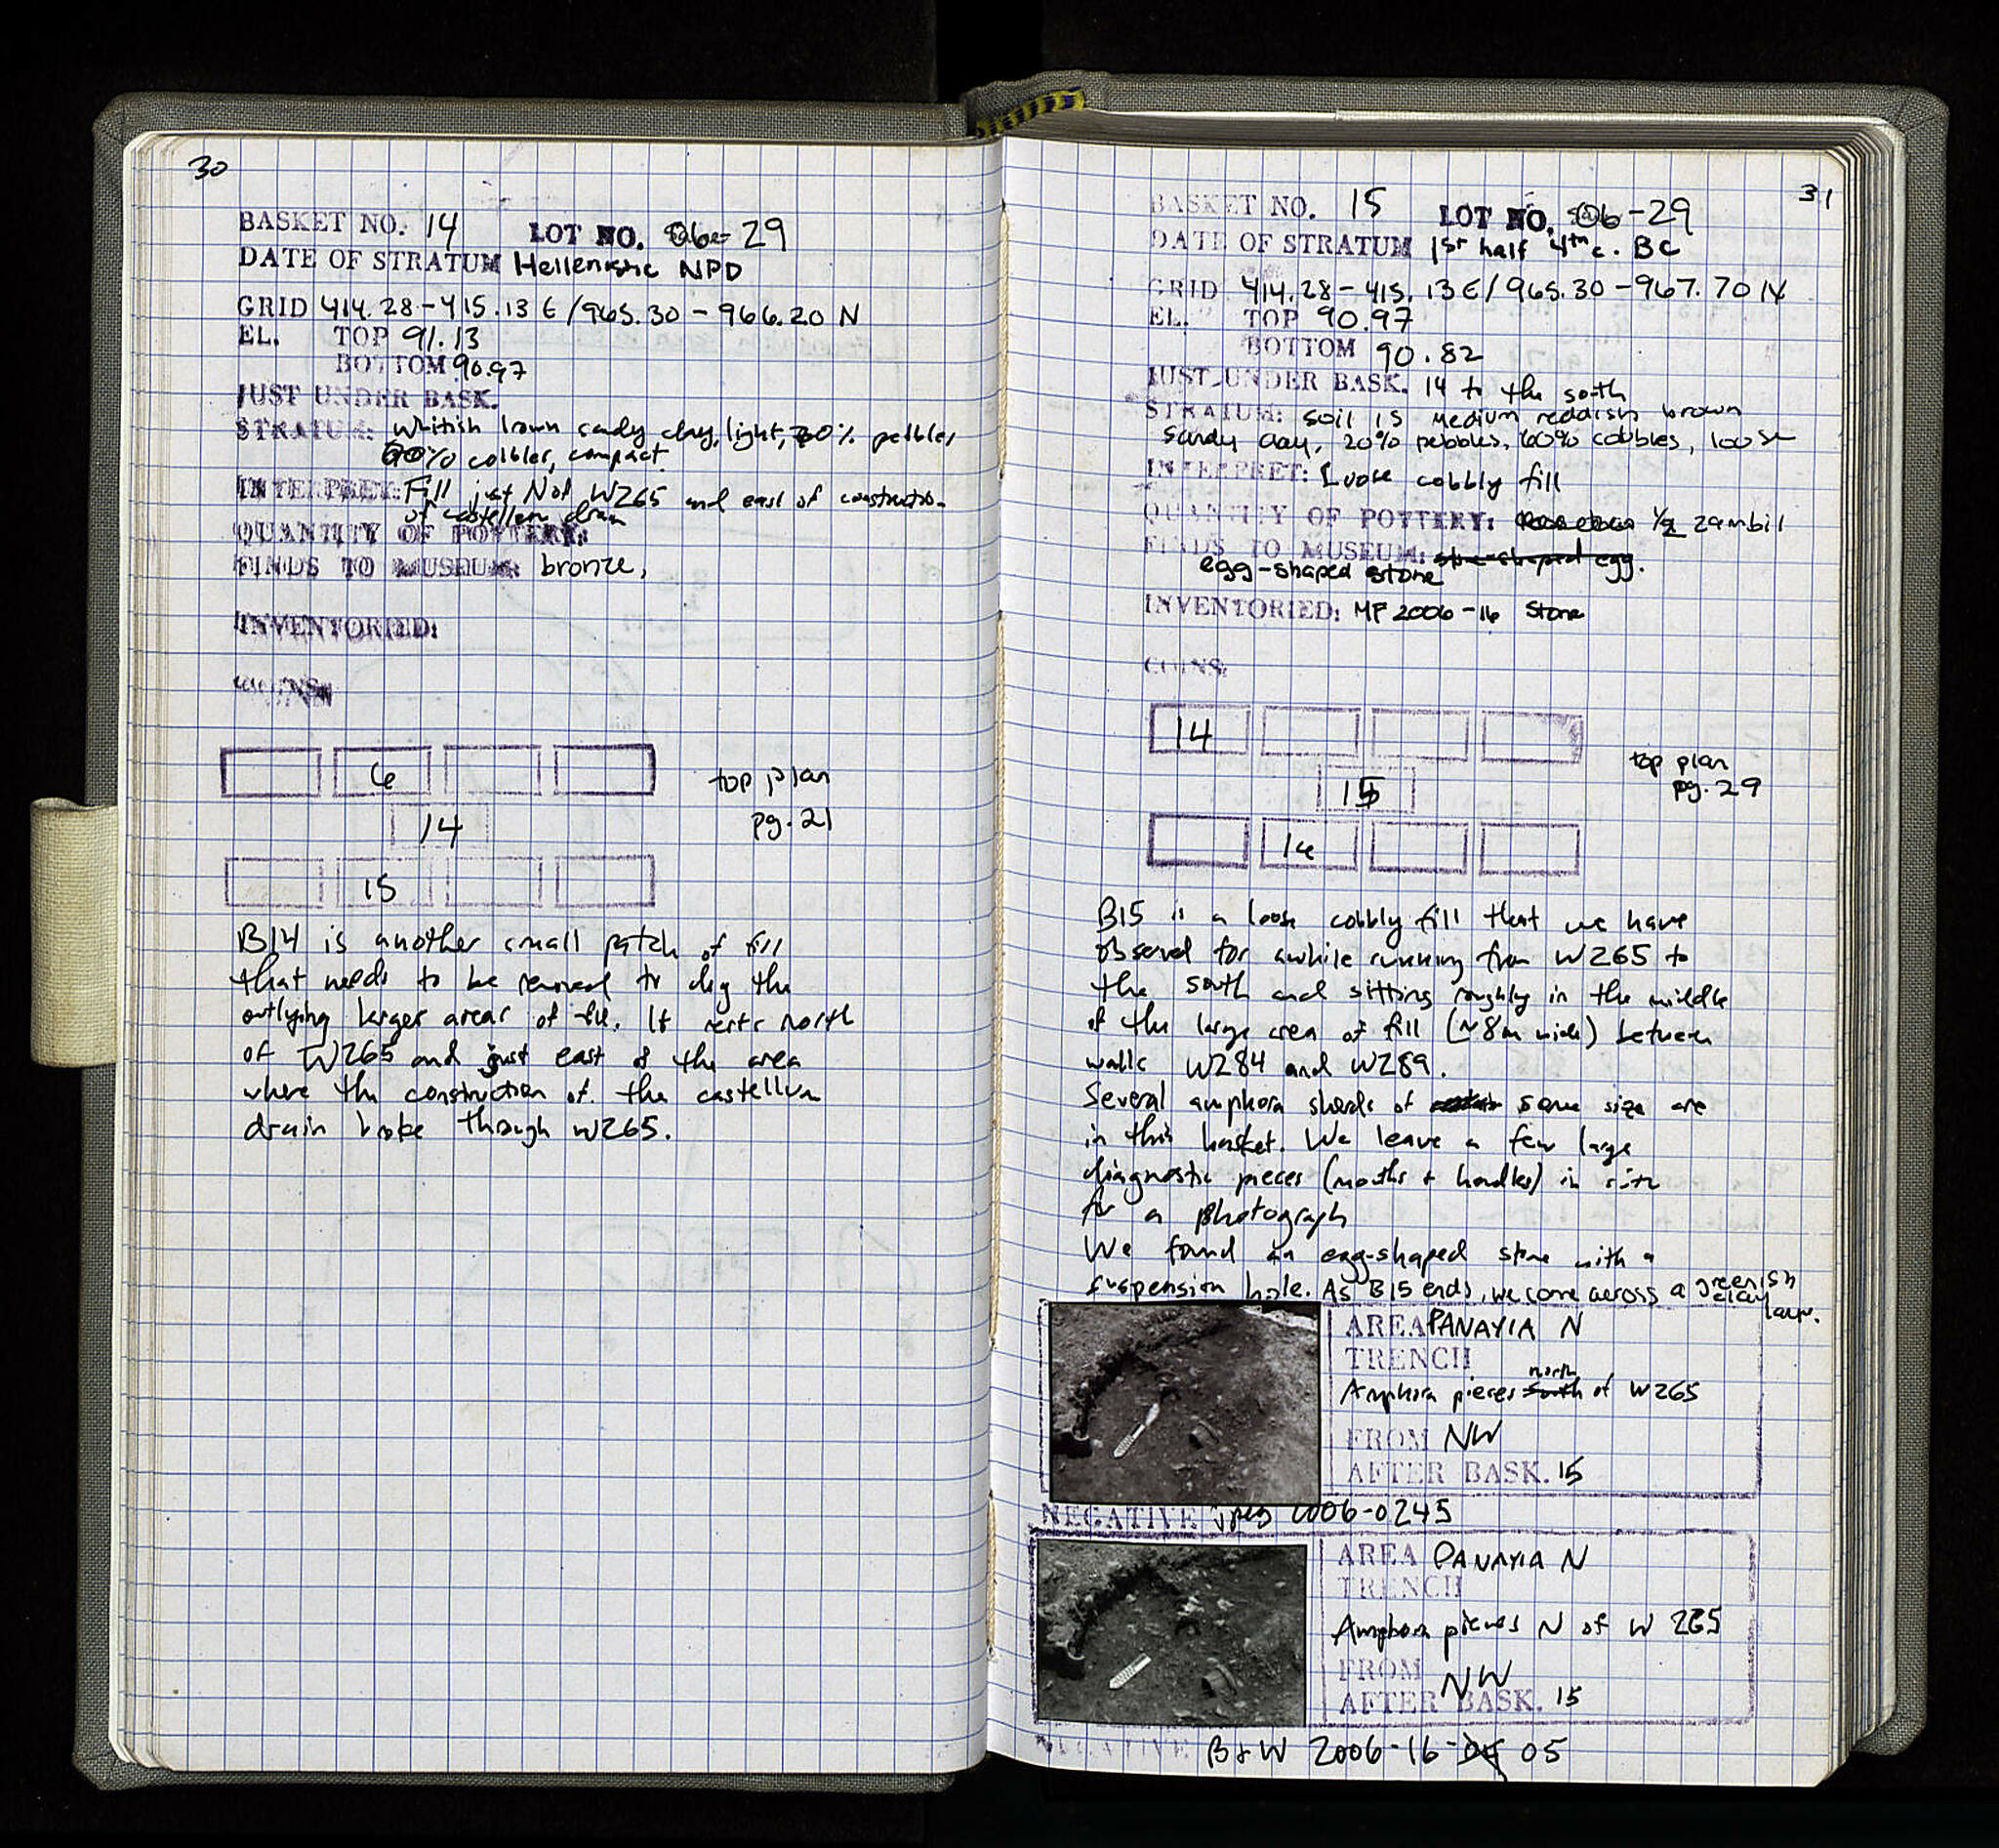 30
BASKET NO. 14 LOT NO. 06-29
DATE OF STRATUM Hellenistic NPD
GRID 414.28-415.13 E/965.30-966.20 N
EL. TOP 91.13
BOTTOM 90.97
JUST UNDER BASK.
STRATUM: Whitish brown sandy clay, light, % pebbles,
% cobbles, compact
INTERPRET: Fill just N of W265 and east of
of castellum drain
QUANTITY OF POTTERY:
FINDS TO MUSEUM: bronze,
INVENTORIED:
COINS:
6
14
15
top plan
pg. 21
B14 is another small patch of fill
that needs to be removed to dig the
outlying larger areas of fill. It rests north
of W265 and just east of the area
where the construction of the castellum
drain broke through W265.
31
BASKET NO. 15 LOT NO. 06-29
DATE OF STRATUM 1st half 4th c. BC
GRID 414.28-415.13E/965.30-967.70 N
EL. TOP 90.97
BOTTOM 90.82
JUST UNDER BASK. 14 to the south
STRATUM: Soil is medium reddish brown
sandy clay, 20% pebbles, 60% cobbles, loose
INTERPRET: Loose cobbly fill
QUANTITY OF POTTERY: 1/2 zambil
FINDS TO MUSEUM: stone-shaped egg.
egg-shaped stone
INVENTORIED: MF 2006-16 Stone
COINS:
14
15
16
top plan
pg. 29
B15 is a loose cobbly fill that we have
observed for awhile running from W265 to
the south and sitting roughly in the middle
of the large area of fill (~8m wide) between
walls W284 and W289.
Several amphora sherds of some size are
in this basket. We leave a few large
diagnostic pieces (mouths + handles) in situ
for a photograph
We found an egg-shaped stone with a
suspension hole. As B15 ends, we come across a greenish
clay
layer.
AREA PANAYIA N
TRENCH
north
Amphora pieces south of W265
FROM NW
AFTER BASK. 15
NEGATIVE jpeg 2006-0245
AREA PANAYIA N
TRENCH
Amphora pieces N of W 265
FROM NW
AFTER BASK. 15
NEGATIVE B+W 2006-16-05